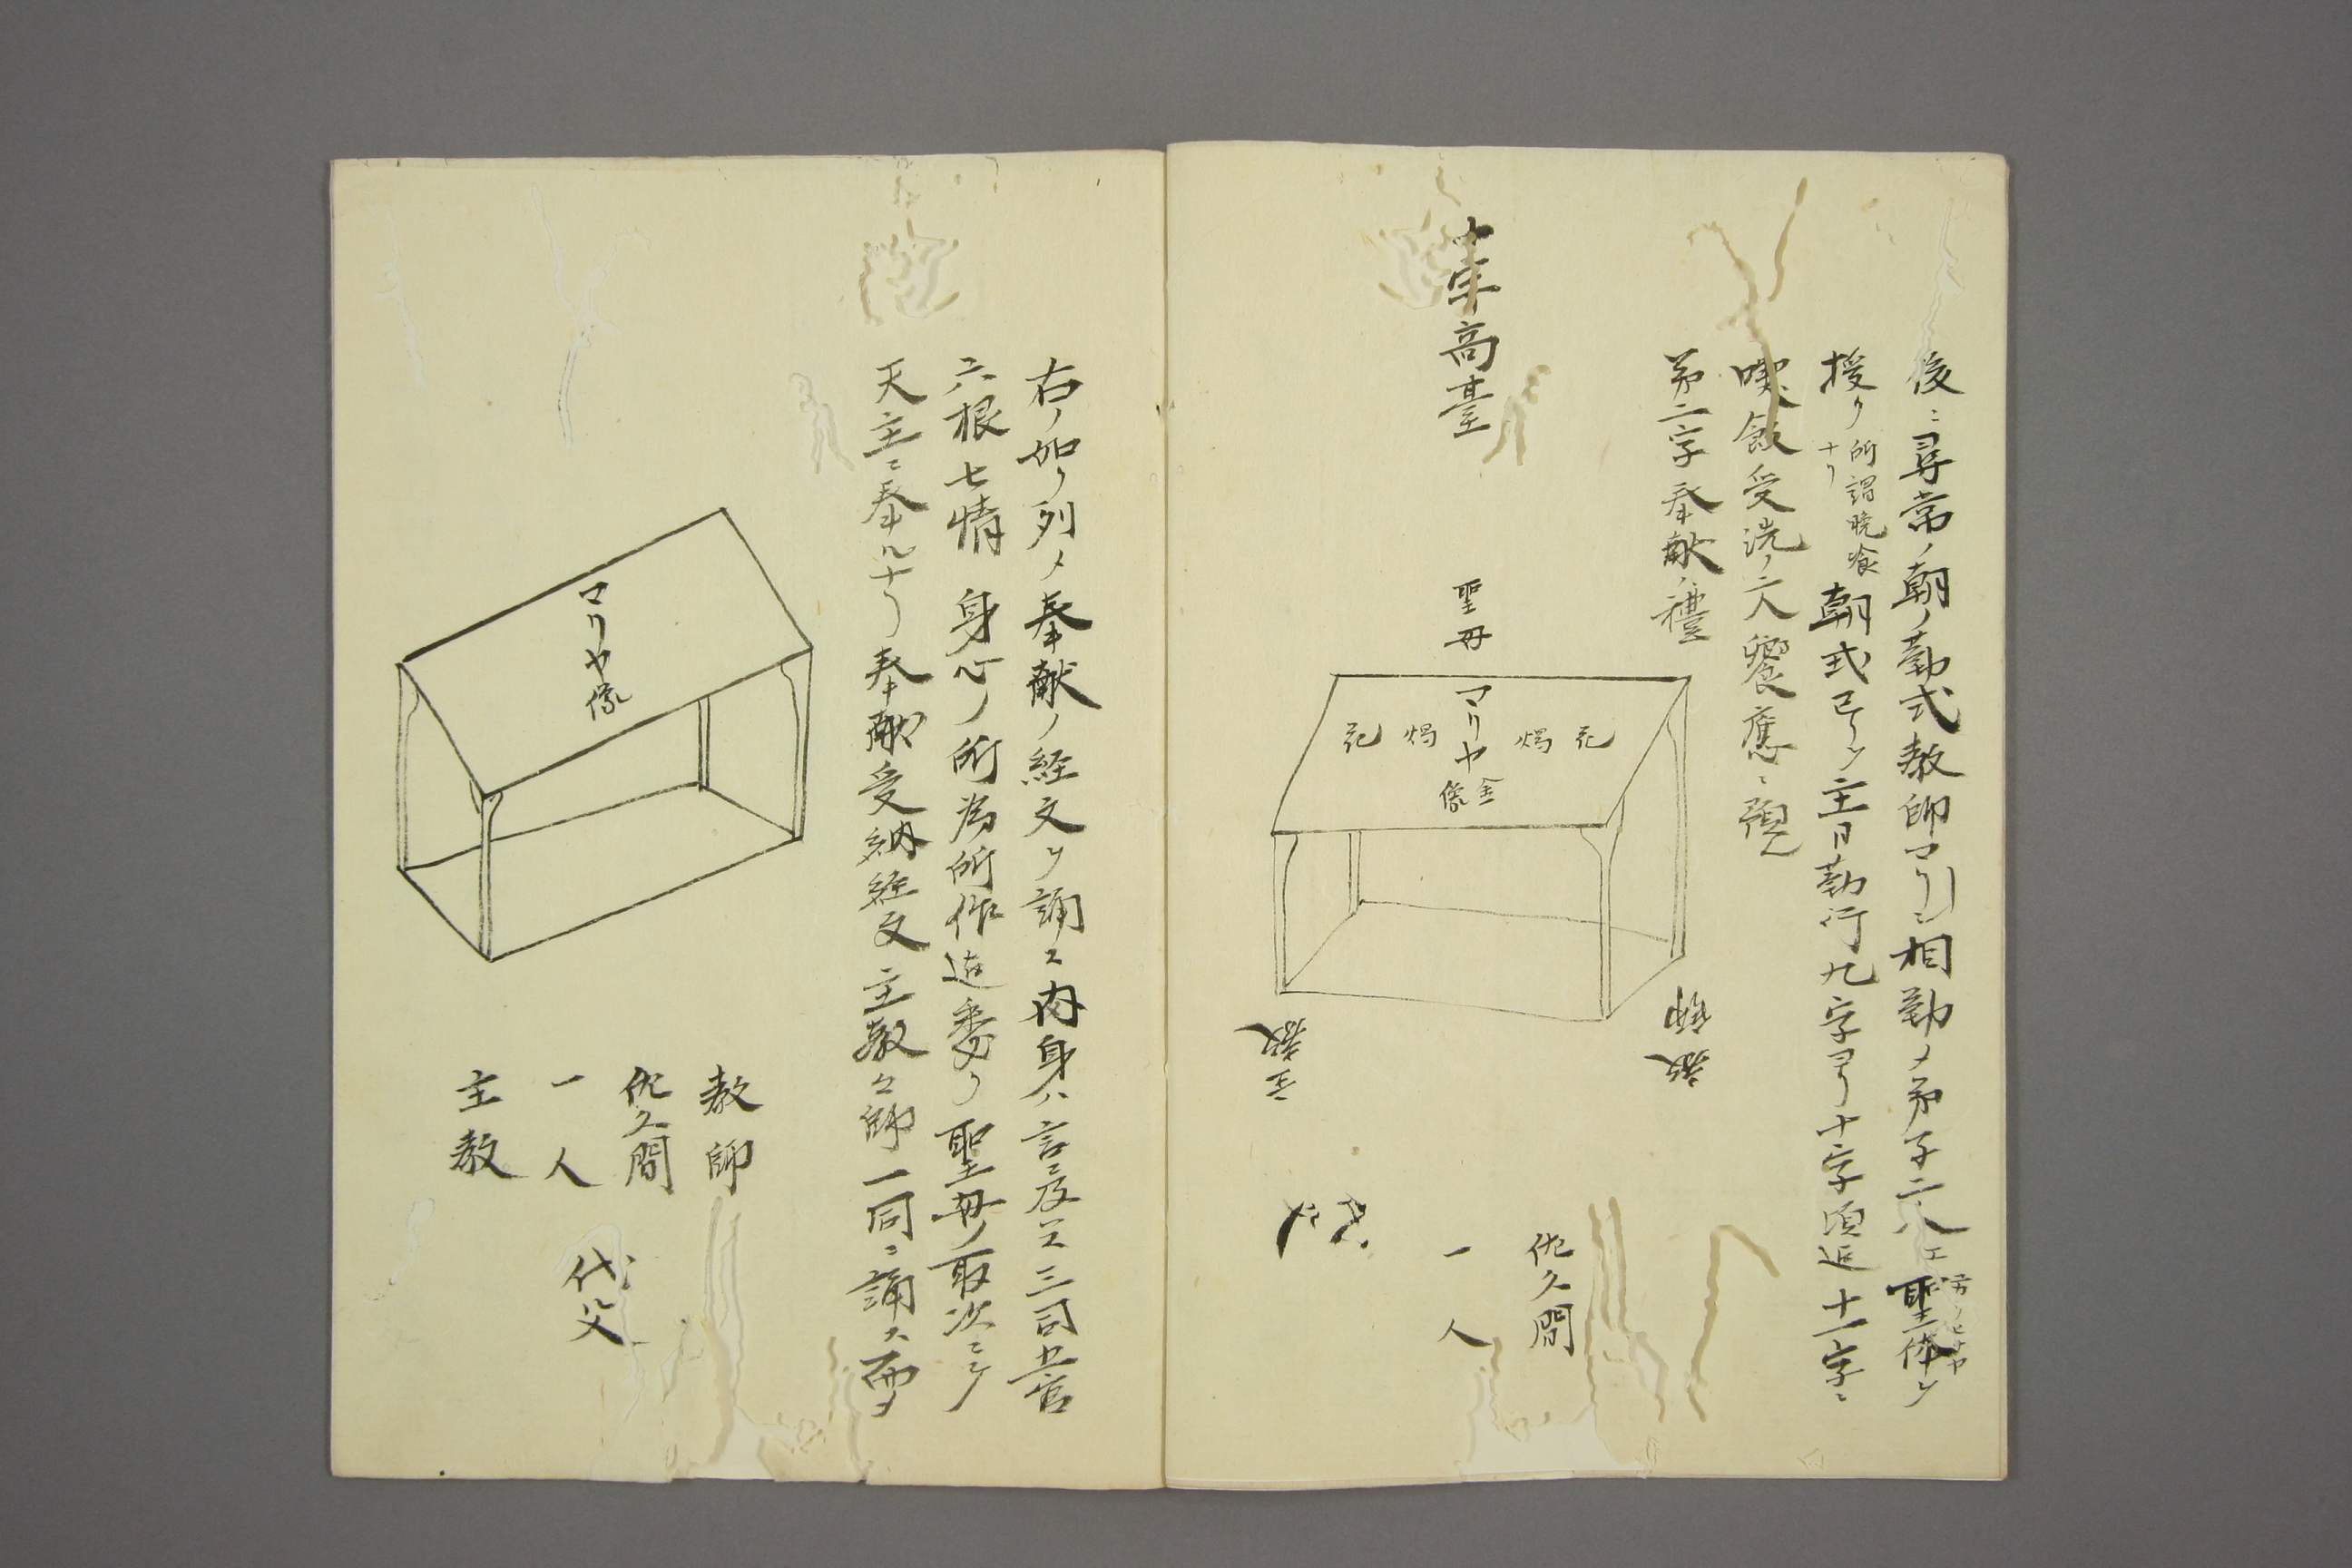 後ニ尋常ノ朝ノ勤式教師マリニ相勤メ弟子二人エ聖体ヲ
授ク
所謂晩飡
ナリ
朝式已テ主日勤行九字ヨリ十字頃迄十一字ニ
喫飯受洗ノ六人饗應ニ預ル
第二字奉献ノ禮
十字高臺
聖母
マリヤ
金
像
花 燭 燭 花
教師
主教
佐久間
一人
右ノ如ク列メ奉献ノ経文ヲ誦ス肉身ハ言ニ及ス三司五官
六根七情身心ノ所為所作迄委ク聖母ノ取次ニテ
天主ニ奉ルナリ奉献受納経文主教々師一同ニ誦ス而メ
マリヤ像
教師
佐久間
一人
主教
代父